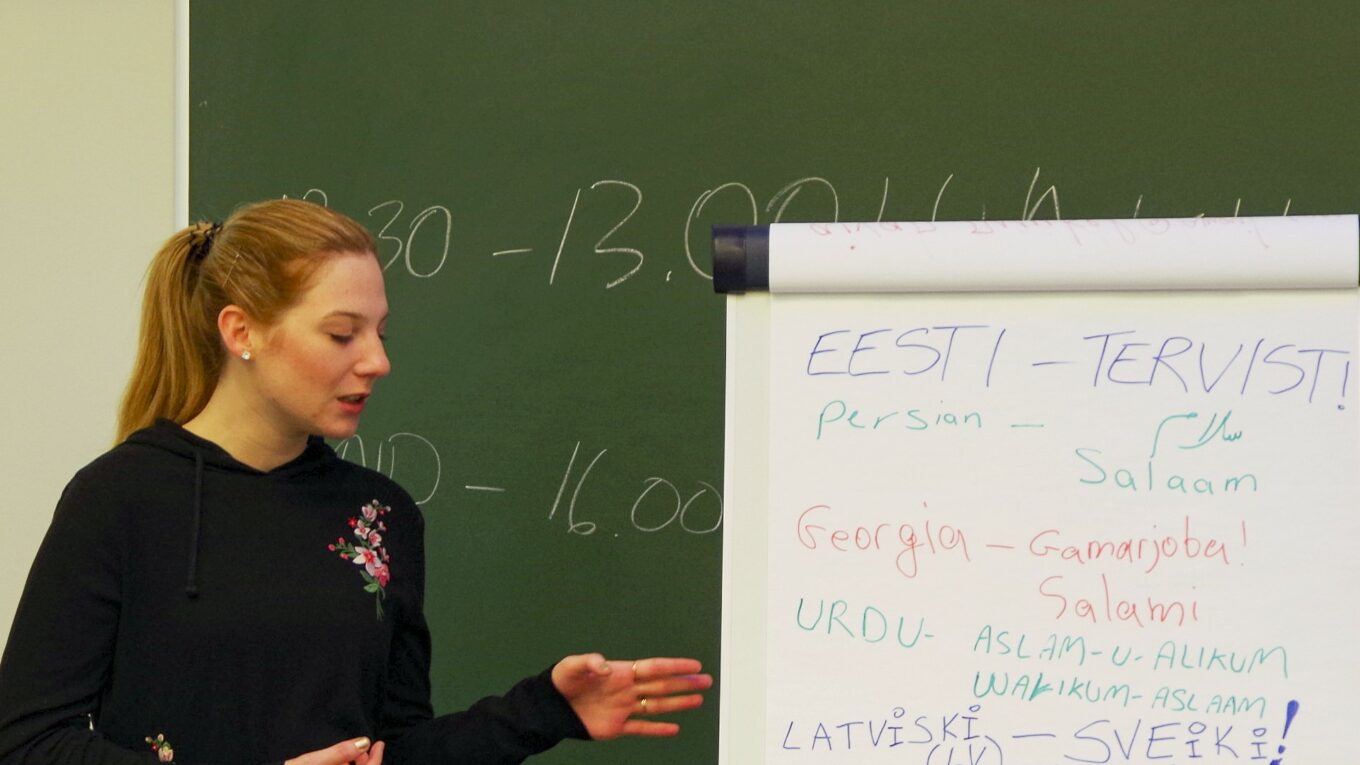 30 - 13.00
- 16.00
EESTI - TERVIST!
Persian - سلام
Salaam
Georgia - Gamarjoba!
Salami
URDU- ASLAM-U-ALIKUM
WALIKUM-ASLAAM
LATVISKI - SVEIKI!
(LV)